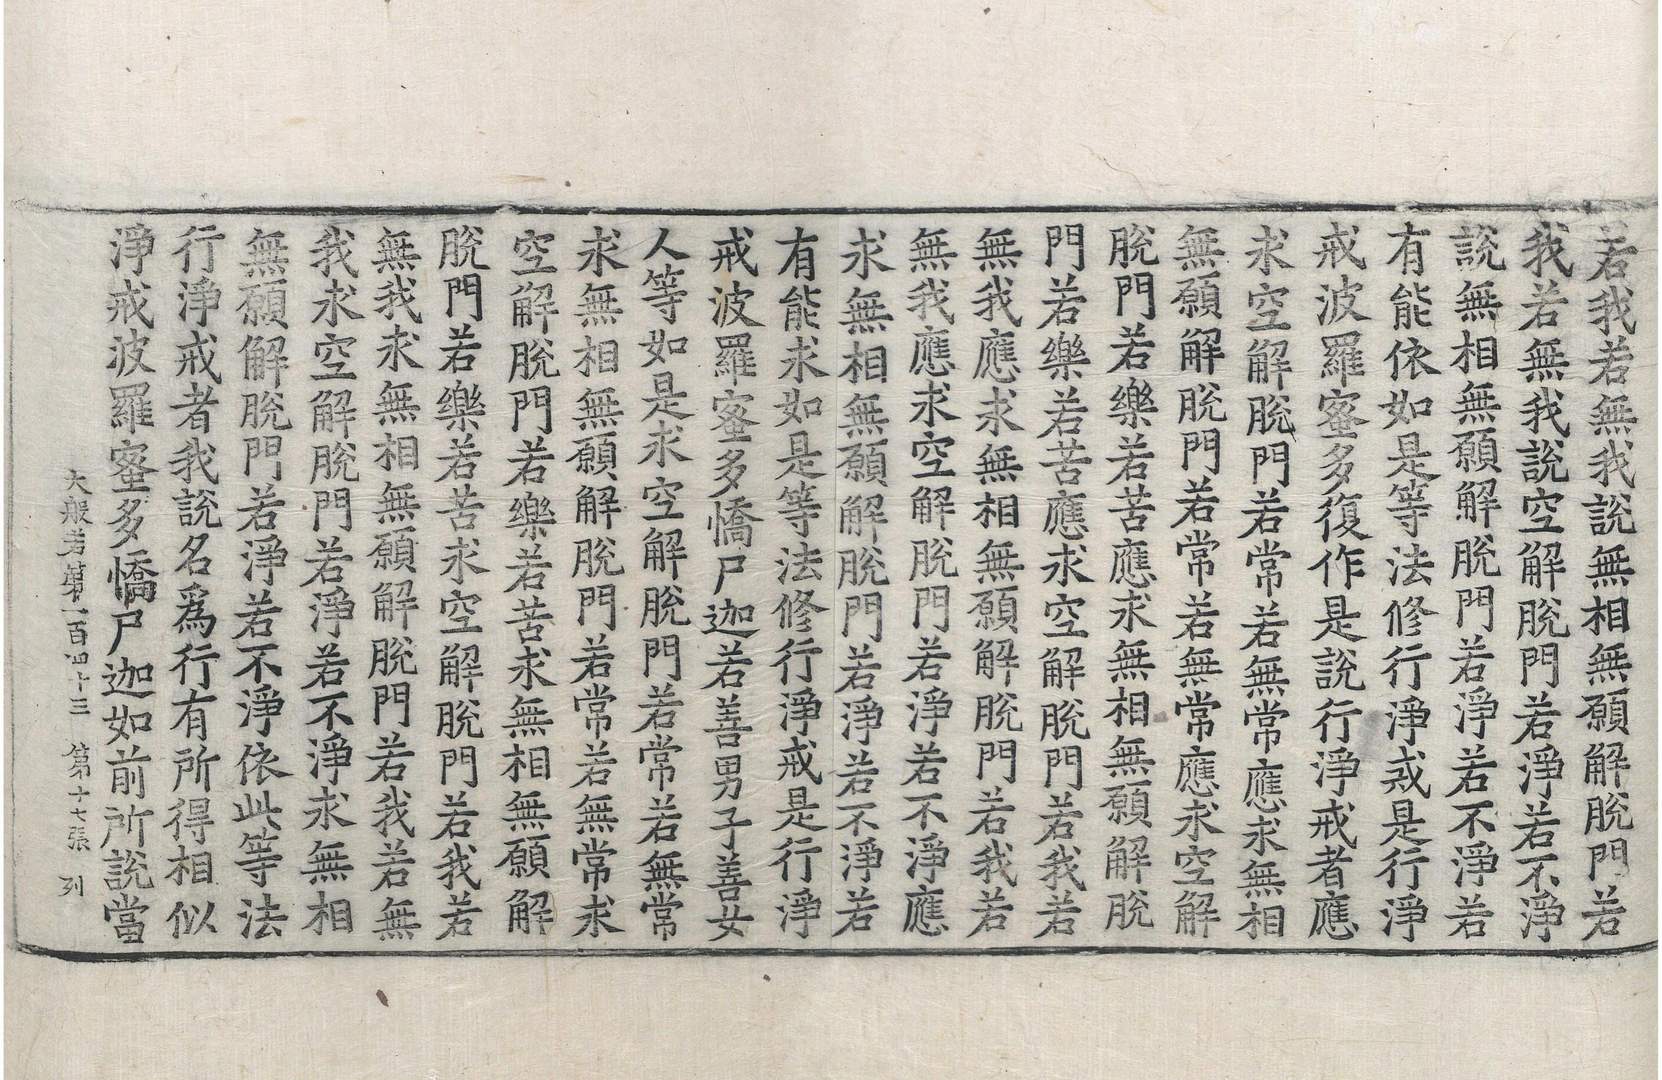 若我若無我說無相無願解脫門若
我若無我說空解脫門若淨若不淨
說無相無願解脫門若淨若不淨若
有能依如是等法修行淨戒是行淨
戒波羅蜜多復作是說行淨戒者應
求空解脫門若常若無常應求無相
無願解脫門若常若無常應求空解
脫門若樂若苦應求無相無願解脫
門若樂若苦應求空解脫門若我若
無我應求無相無願解脫門若我若
無我應求空解脫門若淨若不淨應
求無相無願解脫門若淨若不淨若
有能求如是等法修行淨戒是行淨
戒波羅蜜多憍尸迦若善男子善女
人等如是求空解脫門若常若無常
求無相無願解脫門若常若無常求
空解脫門若樂若苦求無相無願解
脫門若樂若苦求空解脫門若我若
無我求無相無願解脫門若我若無
我求空解脫門若淨若不淨求無相
無願解脫門若淨若不淨依此等法
行淨戒者我說名爲行有所得相似
淨戒波羅蜜多憍尸迦如前所說當
大般若第一百四十三 第十七張 列